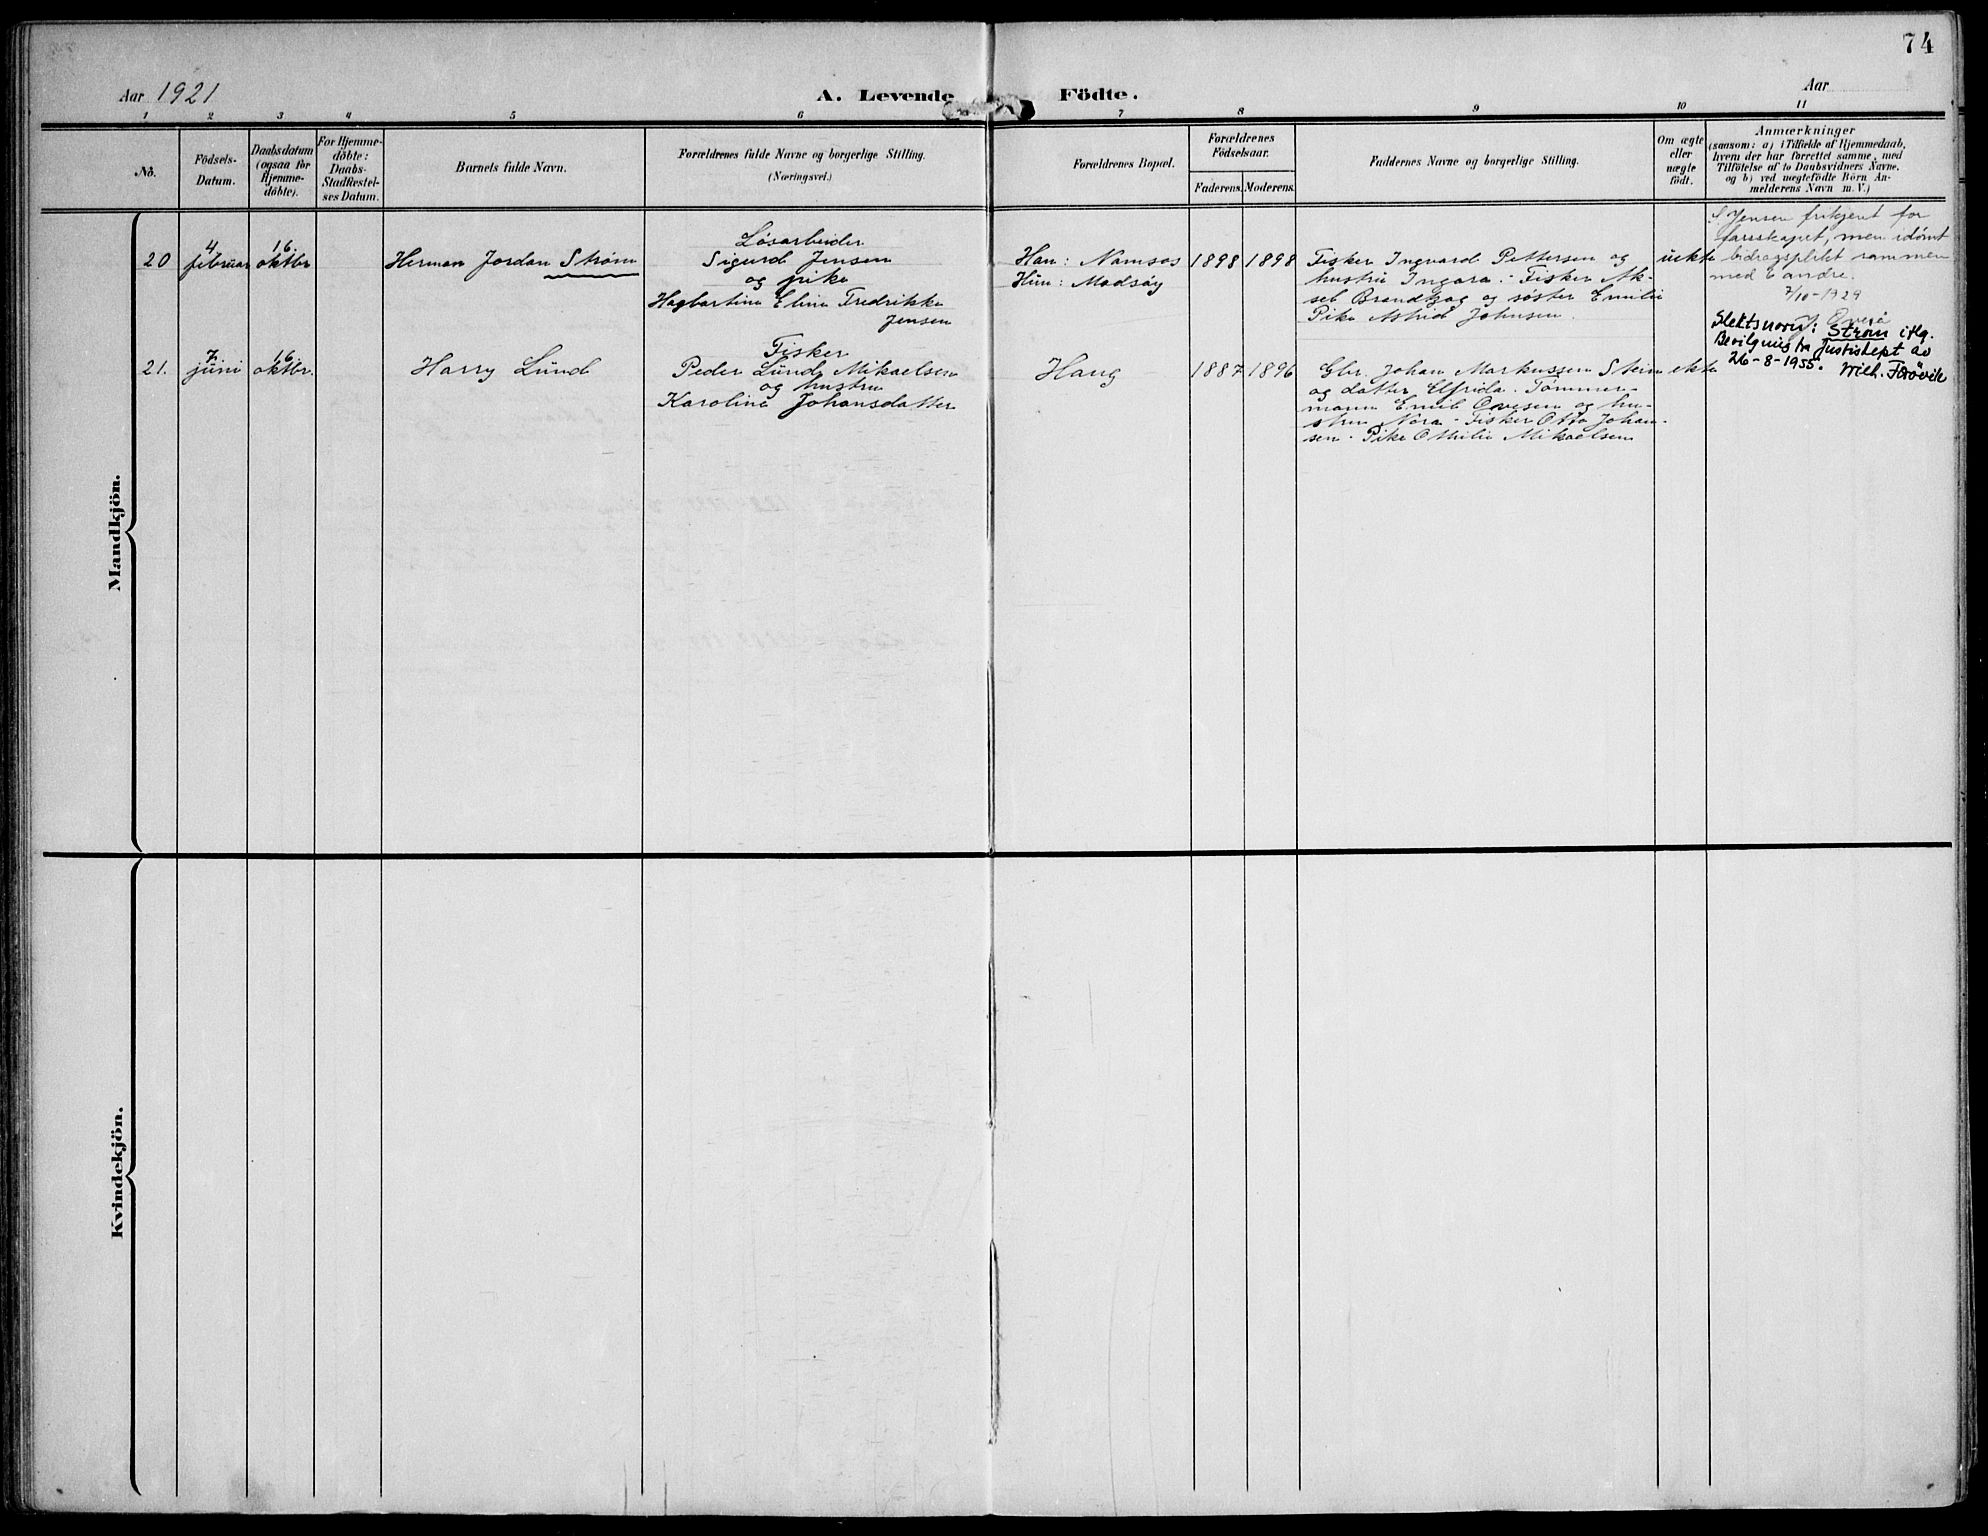 74
Aar 1921
A. Levende Födte.
Aar
1 2 3 4 5 6 7 8 9 10 11
No.
Födsels-
Datum.
Daabsdatum
(ogsaa for
Hjemme-
döbte).
For Hjemme-
döbte:
Daabs-
Stadfæstel-
ses Datum.
Barnets fulde Navn.
Forældrenes fulde Navne og borgerlige Stilling.
(Næringsvei.)
Forældrenes Bopæl.
Forældrenes
Födselsaar.
Faderens. Moderens.
Faddernes Navne og borgerlige Stilling.
Om ægte
eller
uægte
födt.
Anmærkninger
(saasom: a) i Tilfælde af Hjemmedaab,
hvem der har forrettet samme, med
Tilföielse af to Daabsvidners Navne,
og b) ved uægtefödte Börn An-
melderens Navn m. V.)
Mandkjön.
20
4
februar
16
oktbr
Herman Jordan Strøm
Løsarbeider
Sigurd Jensen
og pike
Hagbartine Eline Fredrikke
Jensen
Han: Namsos
Hun: Madsøy
1898 1898
Fisker Ingvard Pettersen og
hustru Ingara - Fisker Ak-
sel Brandtzag og søster Emilie
Pike Astrid Johnsen.
uekte
S Jensen frikjent for
farsskapet, men idømt
bidragsplikt sammen
med 2 andre.
7/10-1929
Slektsnavn: Strøm iflg.
Bevilgning fra Justisdept av
26-8-1955. Wilh. Førøvik
21.
7
juni
16
oktbr.
Harry Lund
Fisker
Peder Lund Mikaelsen
og hustru
Karoline Johansdatter
Haug
1887 1896
Gbr. Johan Markussen Stein
og datter Elfrida. Tømmer-
mann Emil Ovesen og hu-
stru Nora - Fisker Otto Johan-
sen - Pike Othilie Mikaelsen
ekte
Kvindekjön.